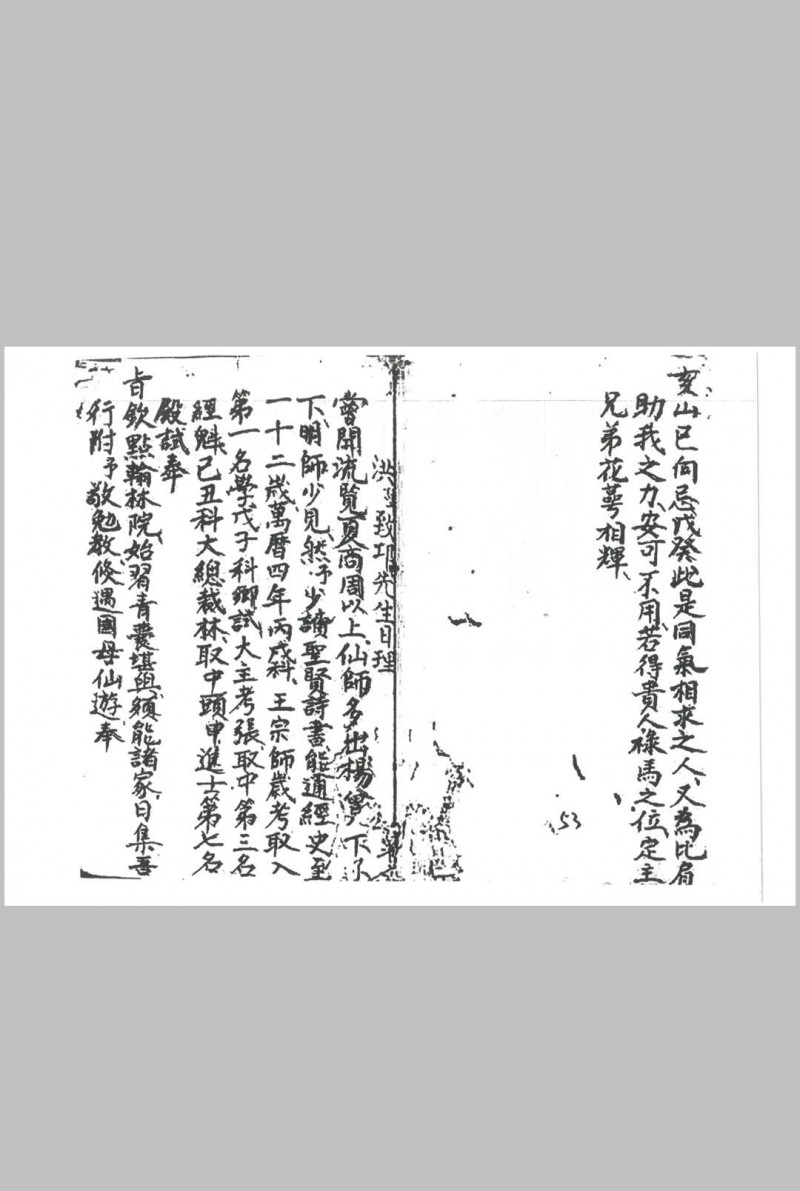 亥山巳向忌戊癸此是同氣相求之人、又為比肩
助我之力、安可不用、若得貴人祿馬之位、定主
兄弟花萼相輝、
53
洪 致 先生日理
嘗聞流覽夏商周以上、仙師多出楊曾、下了
下、明師少見、然予少讀聖賢詩書、能通經史、至
一十二歲萬曆四年丙戌科、王宗師歲考取入
第一名學戊子科鄉試大主考張、取中第三名
經魁、己丑科大總裁林、取中頭甲進士第七名
殿試奉
旨欽點翰林院、始習青囊堪輿、頼能諸家、日集吾
行附予敬勉教候遇國母仙遊奉